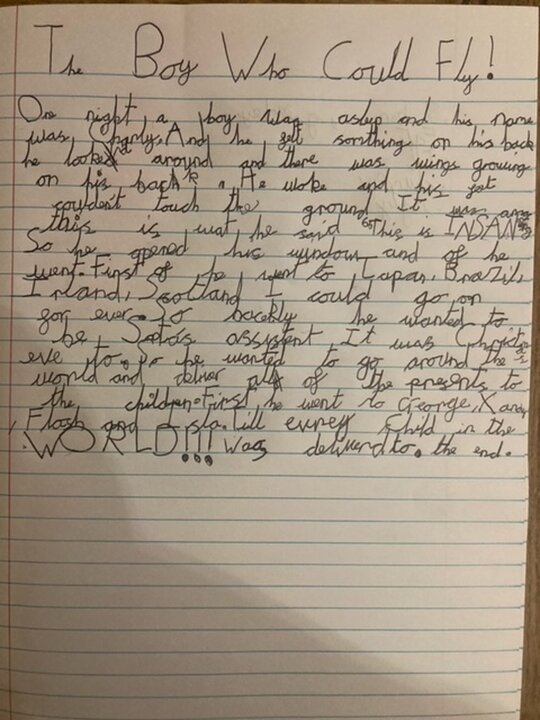 The Boy Who Could Fly!
One night, a boy was asleep and his name
was Charly, And he felt somthing on his back
he looked around and there was wings growing
on his back. He woke and his feet
couldent touch the ground It was
this is wat he said "This is INSANE"
So he opened his window and of he
went. First of he went to Japan, Brazil,
Irland, Scotland I could go on
for ever. So backly he wanted to
be Satas assistent It was Christmas
eve to. So he wanted to go around the
world and deliver all of the presents to
the children. First he went to George, Xandy
, Flash and Isla. till everey child in the
WORLD!!! Was deliverd to. the end.